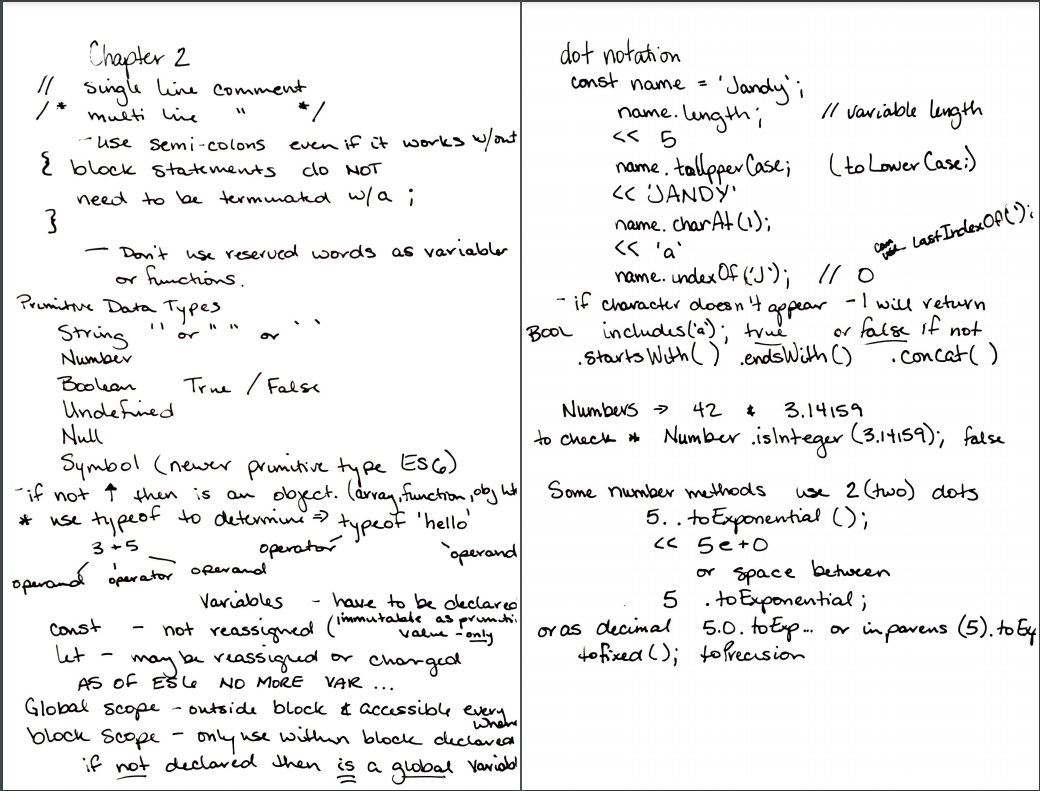 Chapter 2
// single line comment
/* multi line " */
- use semi-colons even if it works w/out
{ block statements do NOT
need to be terminated w/a ;
}
— Don't use reserved words as variables
or functions.
Primitive Data Types
String '' or " " or ` `
Number
Boolean True / False
Undefined
Null
Symbol (newer primitive type ES6)
- if not ↑ then is an object. (array, function, obj
* use typeof to determine ⇒ typeof 'hello'
3 + 5 operator operand
operand operator operand
Variables - have to be declared
const - not reassigned (immutable as primiti
value - only
let - may be reassigned or changed
AS OF ES6 NO MORE VAR ...
Global scope - outside block & accessible every
where
block scope - only use within block declared
if not declared then is a global variabl
dot notation
const name = 'Jandy';
name.length; // variable length
<< 5
name.toUpperCase; (toLowerCase;)
<< 'JANDY'
name.charAt(1);
<< 'a' can use lastIndexOf(' ');
name.indexOf('J'); // 0
- if character doesn't appear -1 will return
BOOL includes('a'); true or false if not
.startsWith( ) .endsWith( ) .concat( )
Numbers → 42 & 3.14159
to check * Number.isInteger(3.14159); false
Some number methods use 2 (two) dots
5..toExponential ( );
<< 5e+0
or space between
5 .toExponential;
or as decimal 5.0.toExp... or in parens (5).toEx
tofixed( ); toPrecision